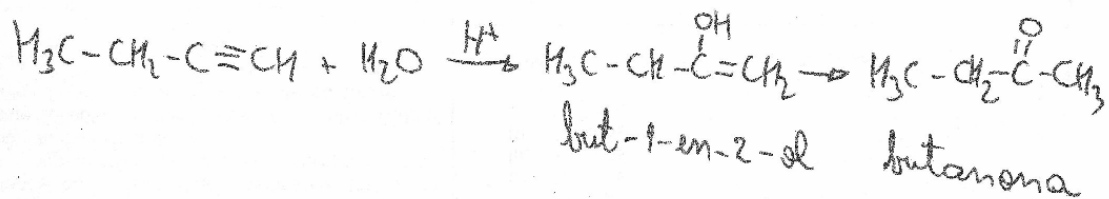 OH O
H₃C-CH₂-C≡CH + H₂O H⁺→ H₃C-CH-C=CH₂ → H₃C-CH₂-C-CH₃
but-1-en-2-ol butanona